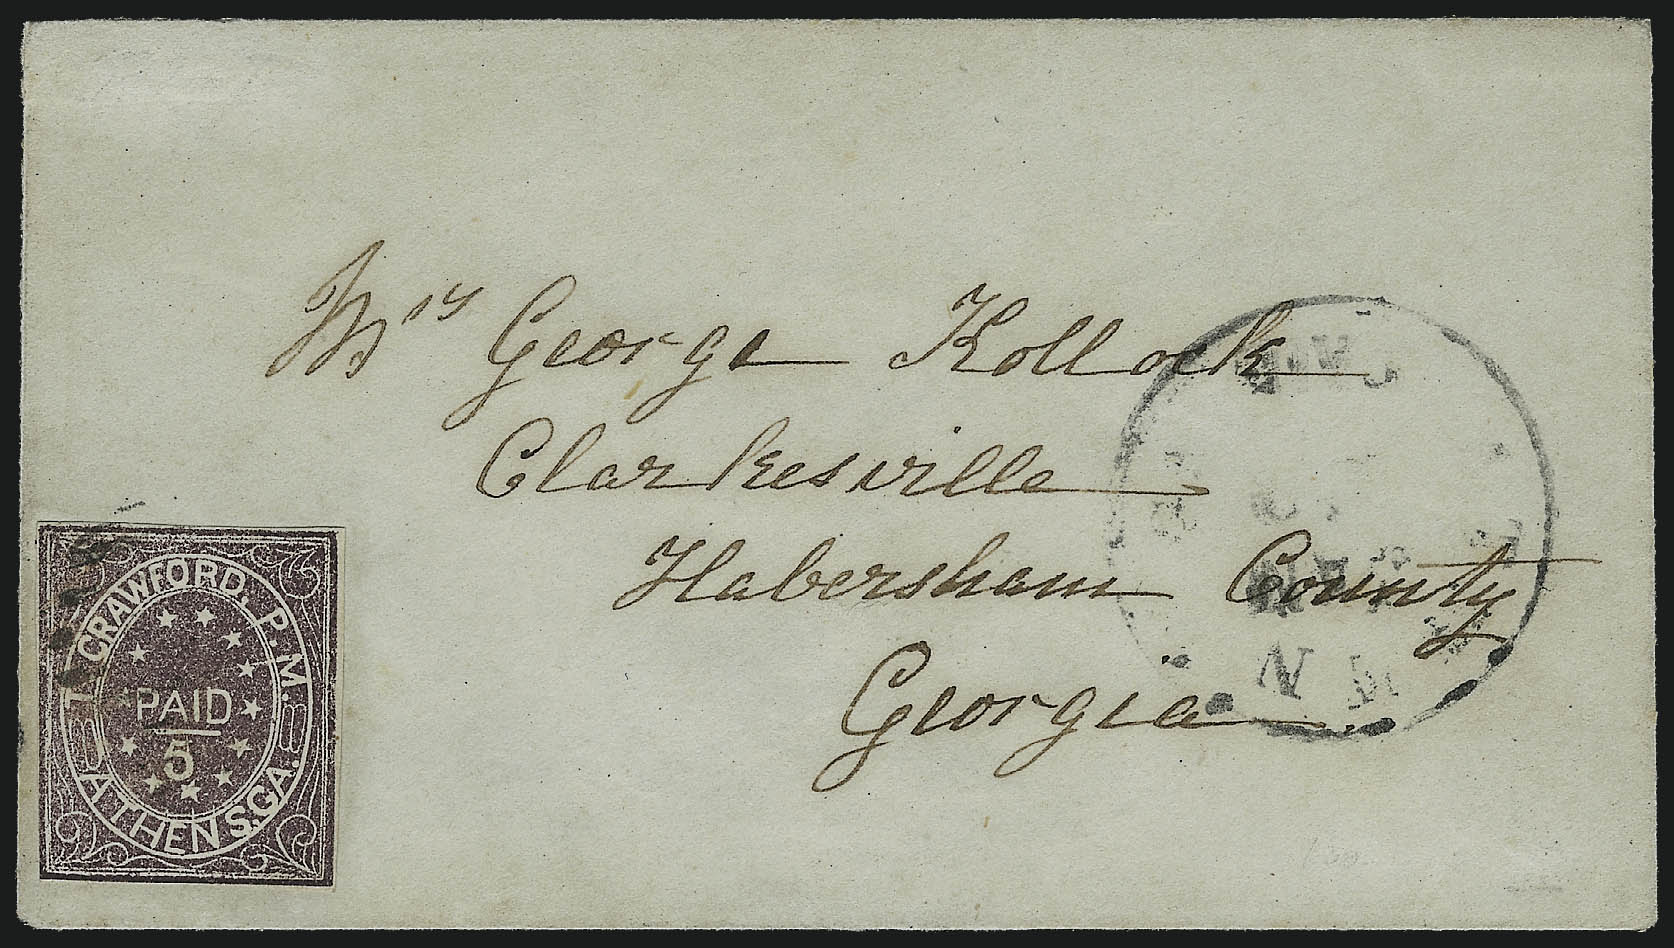 Mrs George Kollock
Clarkesville
Habersham County
Georgia.
T. CRAWFORD, P. M.
PAID
5
ATHENS.GA.